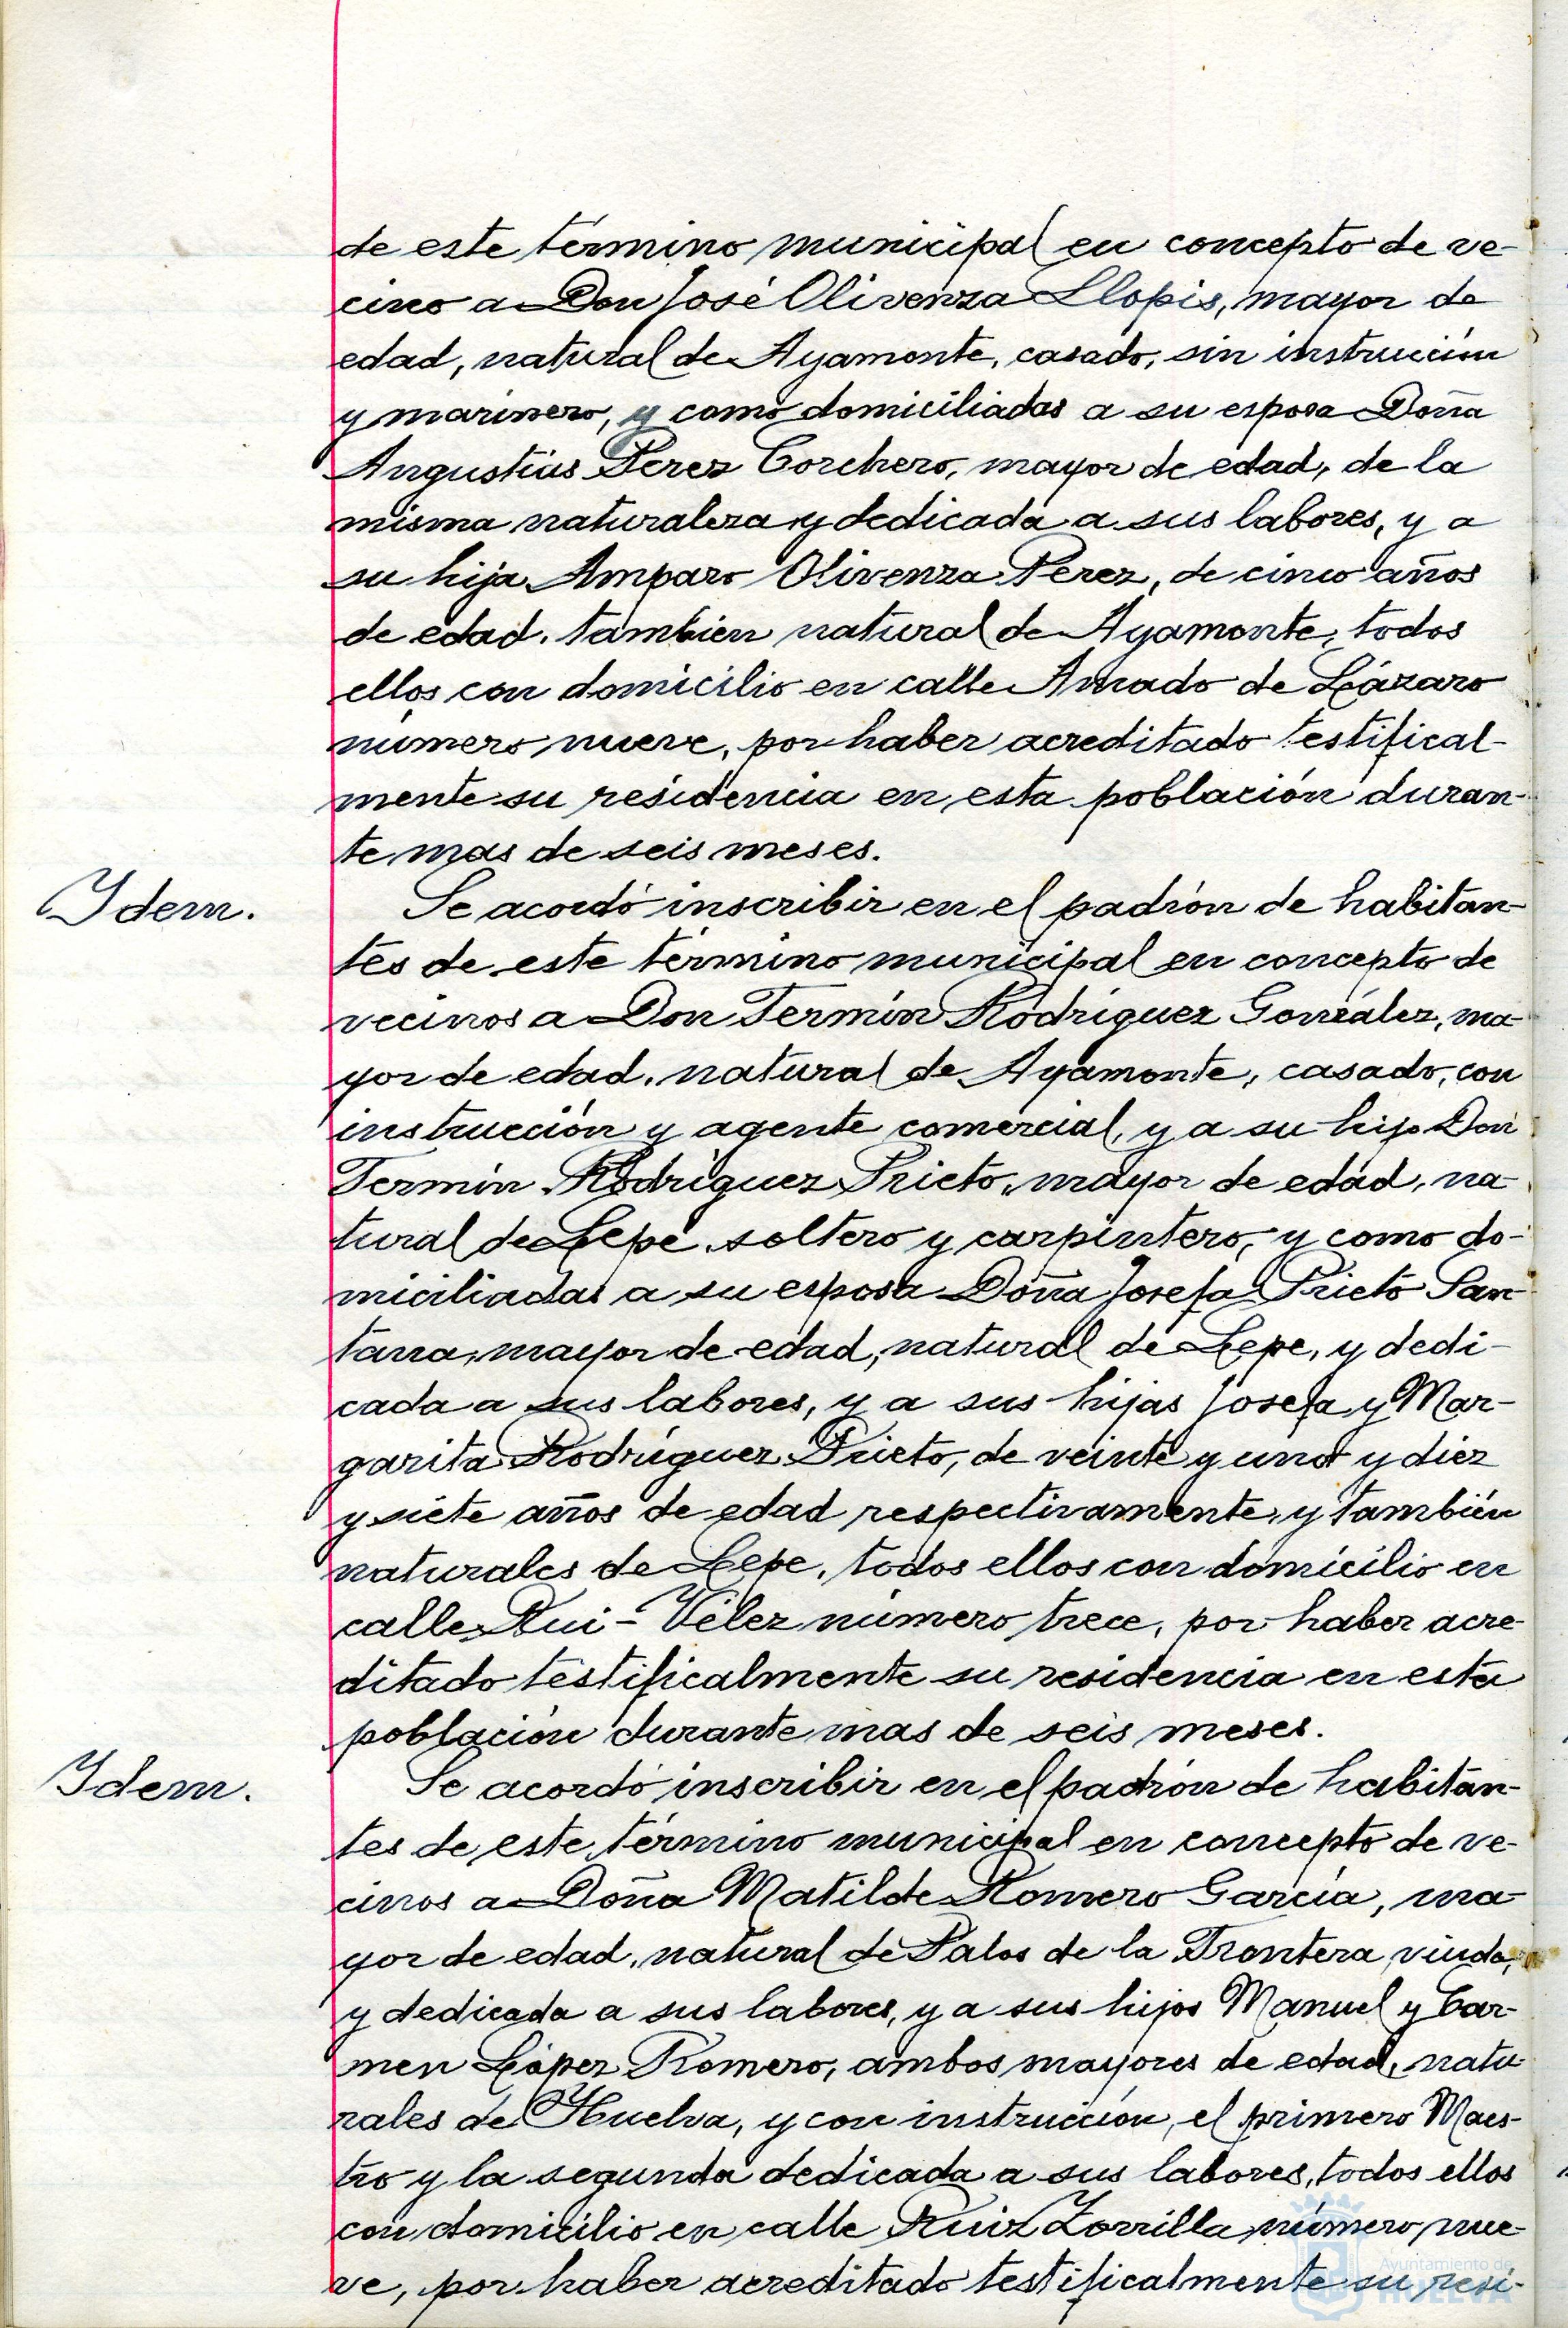 de este término municipal en concepto de ve-
cino a Don José Olivenza Llopis, mayor de
edad, natural de Ayamonte, casado, sin instrucción
y marinero, y como domiciliadas a su esposa Doña
Angustias Perez Corchero, mayor de edad, de la
misma naturaleza y dedicada a sus labores, y a
su hija Amparo Olivenza Perez, de cinco años
de edad, tambien natural de Ayamonte, todos
ellos con domicilio en calle Amado de Lázaro
número nueve, por haber acreditado testifical-
mente su residencia en esta población duran-
te mas de seis meses.
Idem.
Se acordó inscribir en el padrón de habitan-
tes de este término municipal en concepto de
vecinos a Don Fermín Rodríguez González, ma-
yor de edad, natural de Ayamonte, casado, con
instrucción y agente comercial, y a su hijo Don
Fermín Rodríguez Prieto, mayor de edad, na-
tural de Lepe, soltero y carpintero, y como do-
miciliadas a su esposa Doña Josefa Prieto San-
tana, mayor de edad, natural de Lepe, y dedi-
cada a sus labores, y a sus hijas Josefa y Mar-
garita Rodríguez Prieto, de veinte y una y diez
y siete años de edad respectivamente, y también
naturales de Lepe, todos ellos con domicilio en
calle Rui-Vélez número trece, por haber acre-
ditado testificalmente su residencia en esta
población durante mas de seis meses.
Idem.
Se acordó inscribir en el padrón de habitan-
tes de este término municipal en concepto de ve-
cinos a Doña Matilde Romero García, ma-
yor de edad, natural de Palos de la Frontera, viuda,
y dedicada a sus labores, y a sus hijos Manuel y Car-
men López Romero, ambos mayores de edad, natu-
rales de Huelva, y con instrucción, el primero Maes-
tro y la segunda dedicada a sus labores, todos ellos
con domicilio en calle Ruiz Zorrilla número nue-
ve, por haber acreditado testificalmente su resi-
Ayuntamiento de
HUELVA